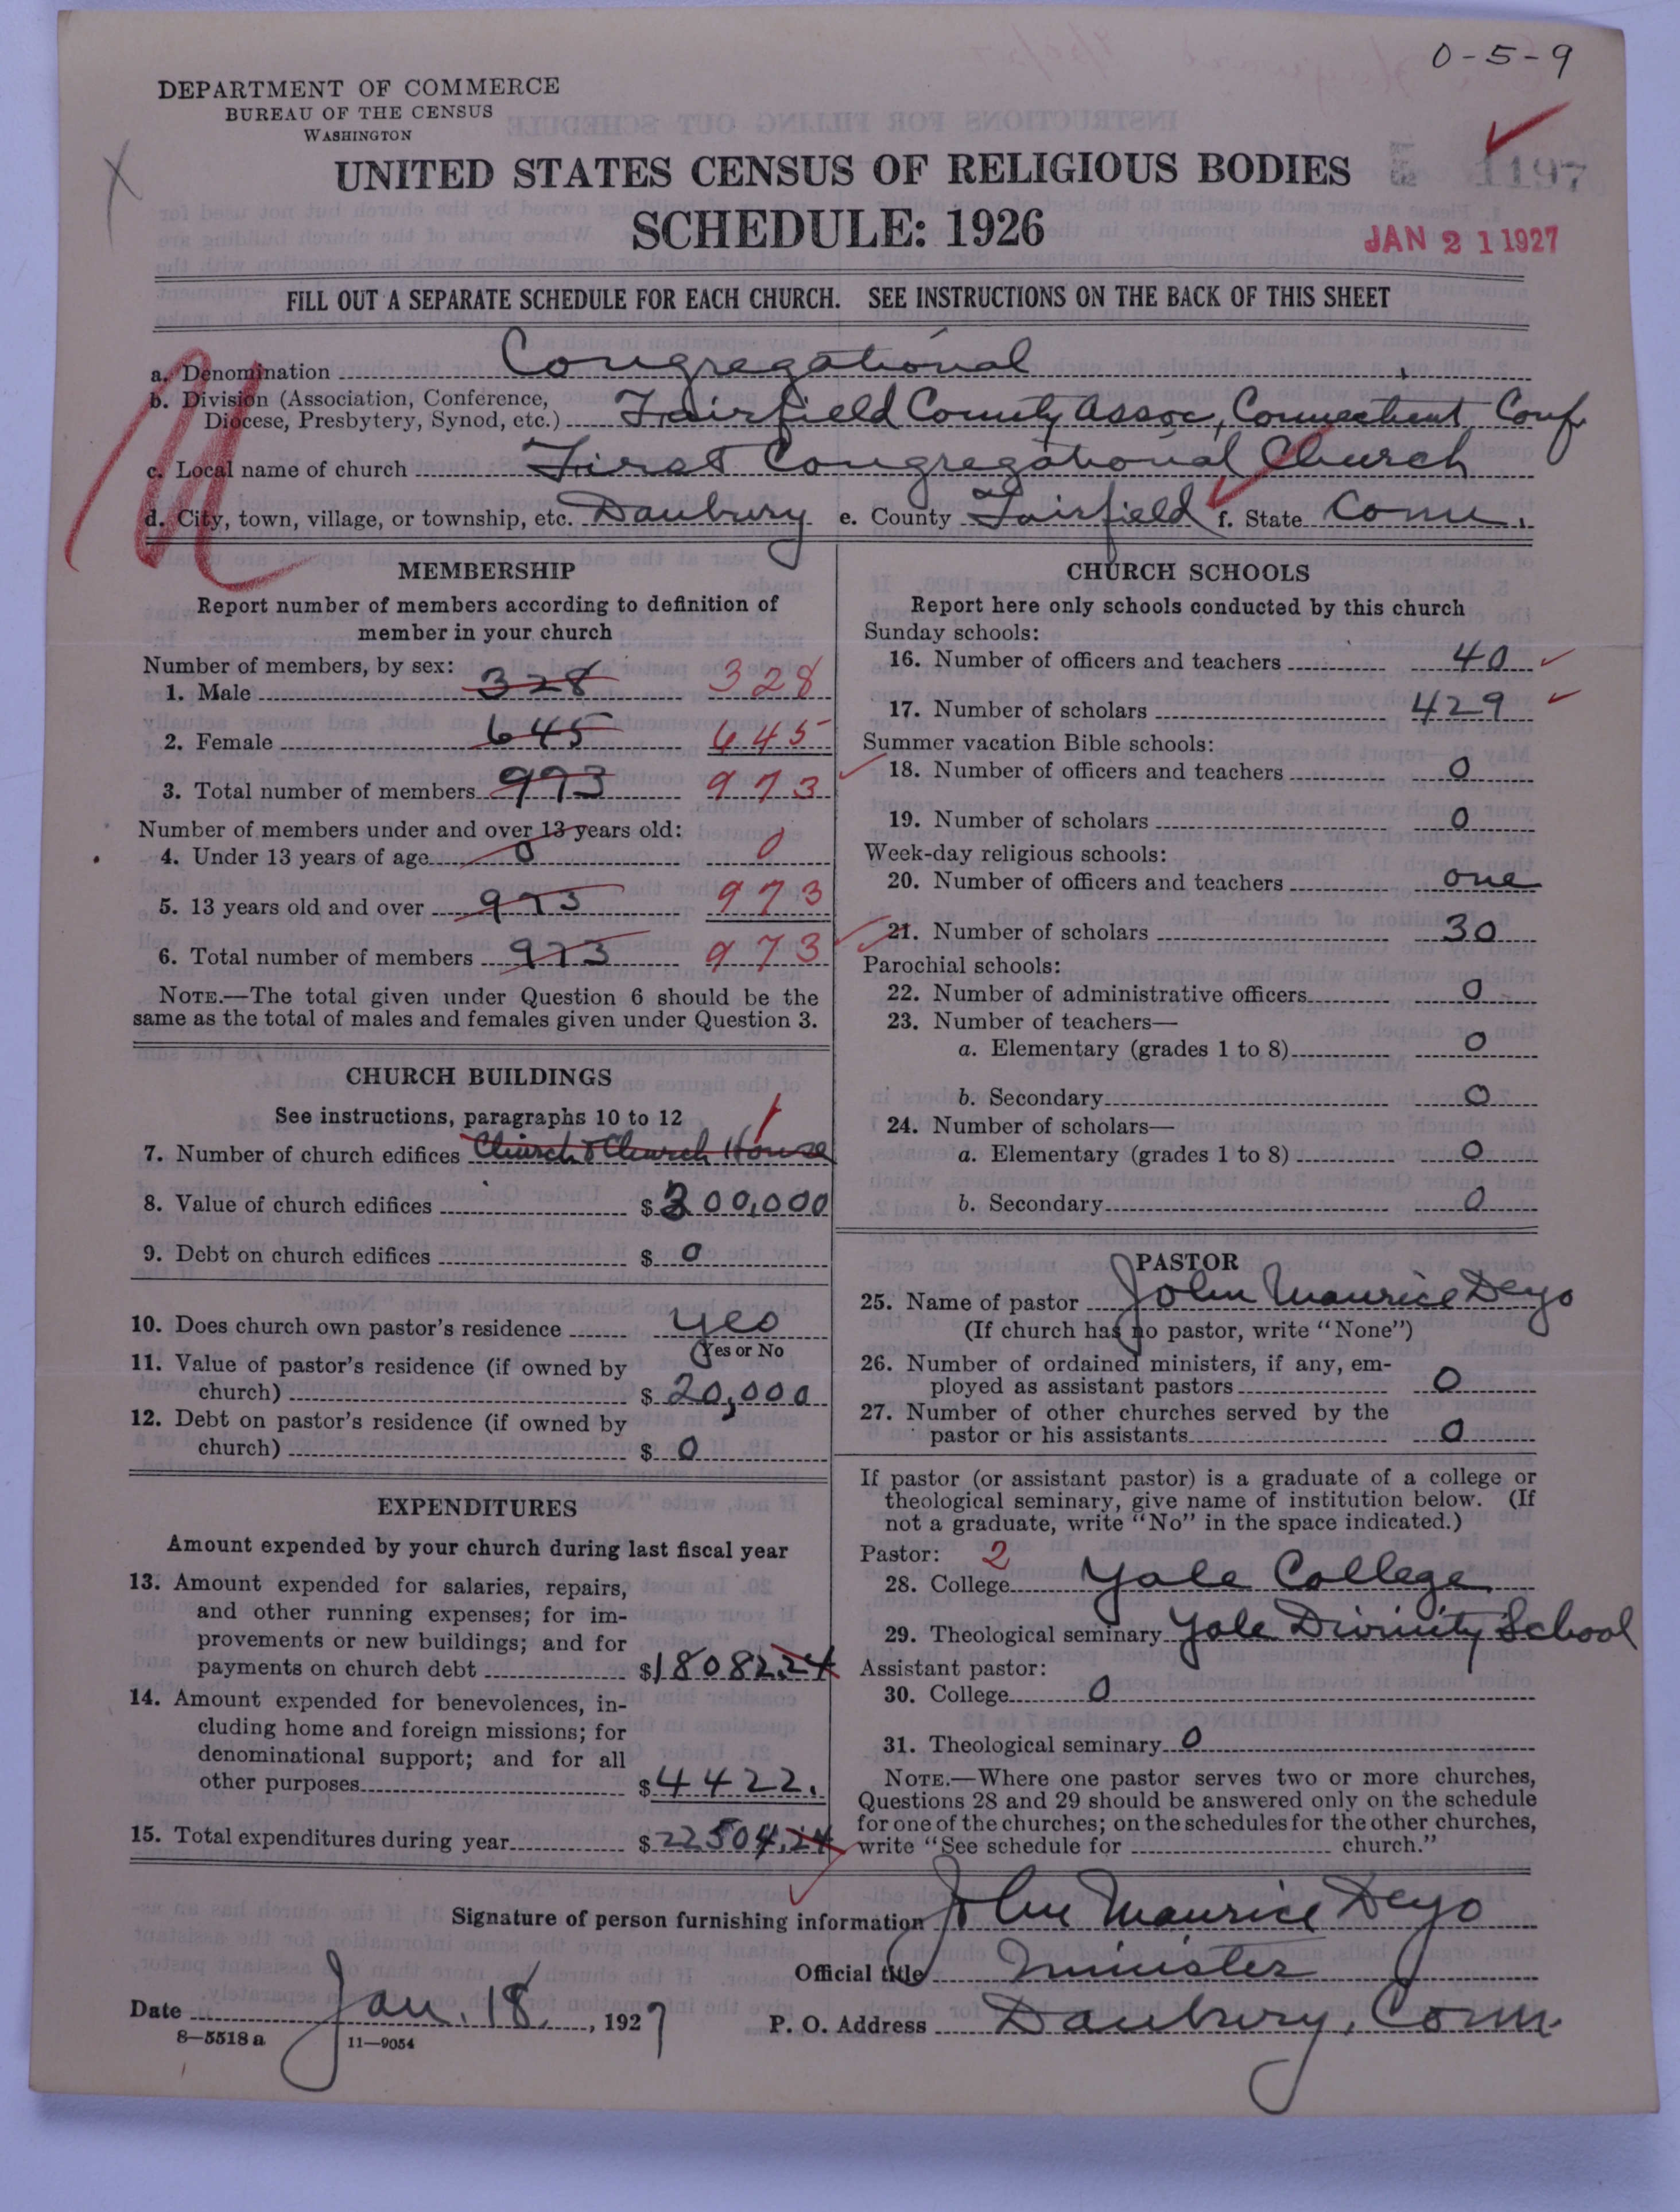 0-5-9
DEPARTMENT OF COMMERCE
BUREAU OF THE CENSUS
WASHINGTON
1197
UNITED STATES CENSUS OF RELIGIOUS BODIES
SCHEDULE: 1926
JAN 21 1927
FILL OUT A SEPARATE SCHEDULE FOR EACH CHURCH. SEE INSTRUCTIONS ON THE BACK OF THIS SHEET
a. Denomination Congregational
b. Division (Association, Conference,
Diocese, Presbytery, Synod, etc.) Fairfield County Assoc, Connecticut Conf.
c. Local name of church First Congregational Church
d. City, town, village, or township, etc. Danbury e. County Fairfield f. State Conn.
MEMBERSHIP
Report number of members according to definition of
member in your church
Number of members, by sex:
1. Male 328 328
2. Female 645 645
3. Total number of members 973 973
Number of members under and over 13 years old:
4. Under 13 years of age 0 0
5. 13 years old and over 973 973
6. Total number of members 973 973
NOTE.—The total given under Question 6 should be the
same as the total of males and females given under Question 3.
CHURCH BUILDINGS
See instructions, paragraphs 10 to 12
7. Number of church edifices Church & Church House 1
8. Value of church edifices $ 200,000
9. Debt on church edifices $ 0
10. Does church own pastor's residence yes
Yes or No
11. Value of pastor's residence (if owned by
church) $ 20,000
12. Debt on pastor's residence (if owned by
church) $ 0
EXPENDITURES
Amount expended by your church during last fiscal year
13. Amount expended for salaries, repairs,
and other running expenses; for im-
provements or new buildings; and for
payments on church debt $18082.24
14. Amount expended for benevolences, in-
cluding home and foreign missions; for
denominational support; and for all
other purposes $4422.
15. Total expenditures during year $22504.24
CHURCH SCHOOLS
Report here only schools conducted by this church
Sunday schools:
16. Number of officers and teachers 40
17. Number of scholars 429
Summer vacation Bible schools:
18. Number of officers and teachers 0
19. Number of scholars 0
Week-day religious schools:
20. Number of officers and teachers one
21. Number of scholars 30
Parochial schools:
22. Number of administrative officers 0
23. Number of teachers—
a. Elementary (grades 1 to 8) 0
b. Secondary 0
24. Number of scholars—
a. Elementary (grades 1 to 8) 0
b. Secondary 0
PASTOR
25. Name of pastor John Maurice Deyo
(If church has no pastor, write "None")
26. Number of ordained ministers, if any, em-
ployed as assistant pastors 0
27. Number of other churches served by the
pastor or his assistants 0
If pastor (or assistant pastor) is a graduate of a college or
theological seminary, give name of institution below. (If
not a graduate, write "No" in the space indicated.)
Pastor: 2
28. College Yale College
29. Theological seminary Yale Divinity School
Assistant pastor:
30. College 0
31. Theological seminary 0
NOTE.—Where one pastor serves two or more churches,
Questions 28 and 29 should be answered only on the schedule
for one of the churches; on the schedules for the other churches,
write "See schedule for church."
Signature of person furnishing information John Maurice Deyo
Official title Minister
Date Jan. 18, 1927 P. O. Address Danbury, Conn.
8—5518 a 11—9054